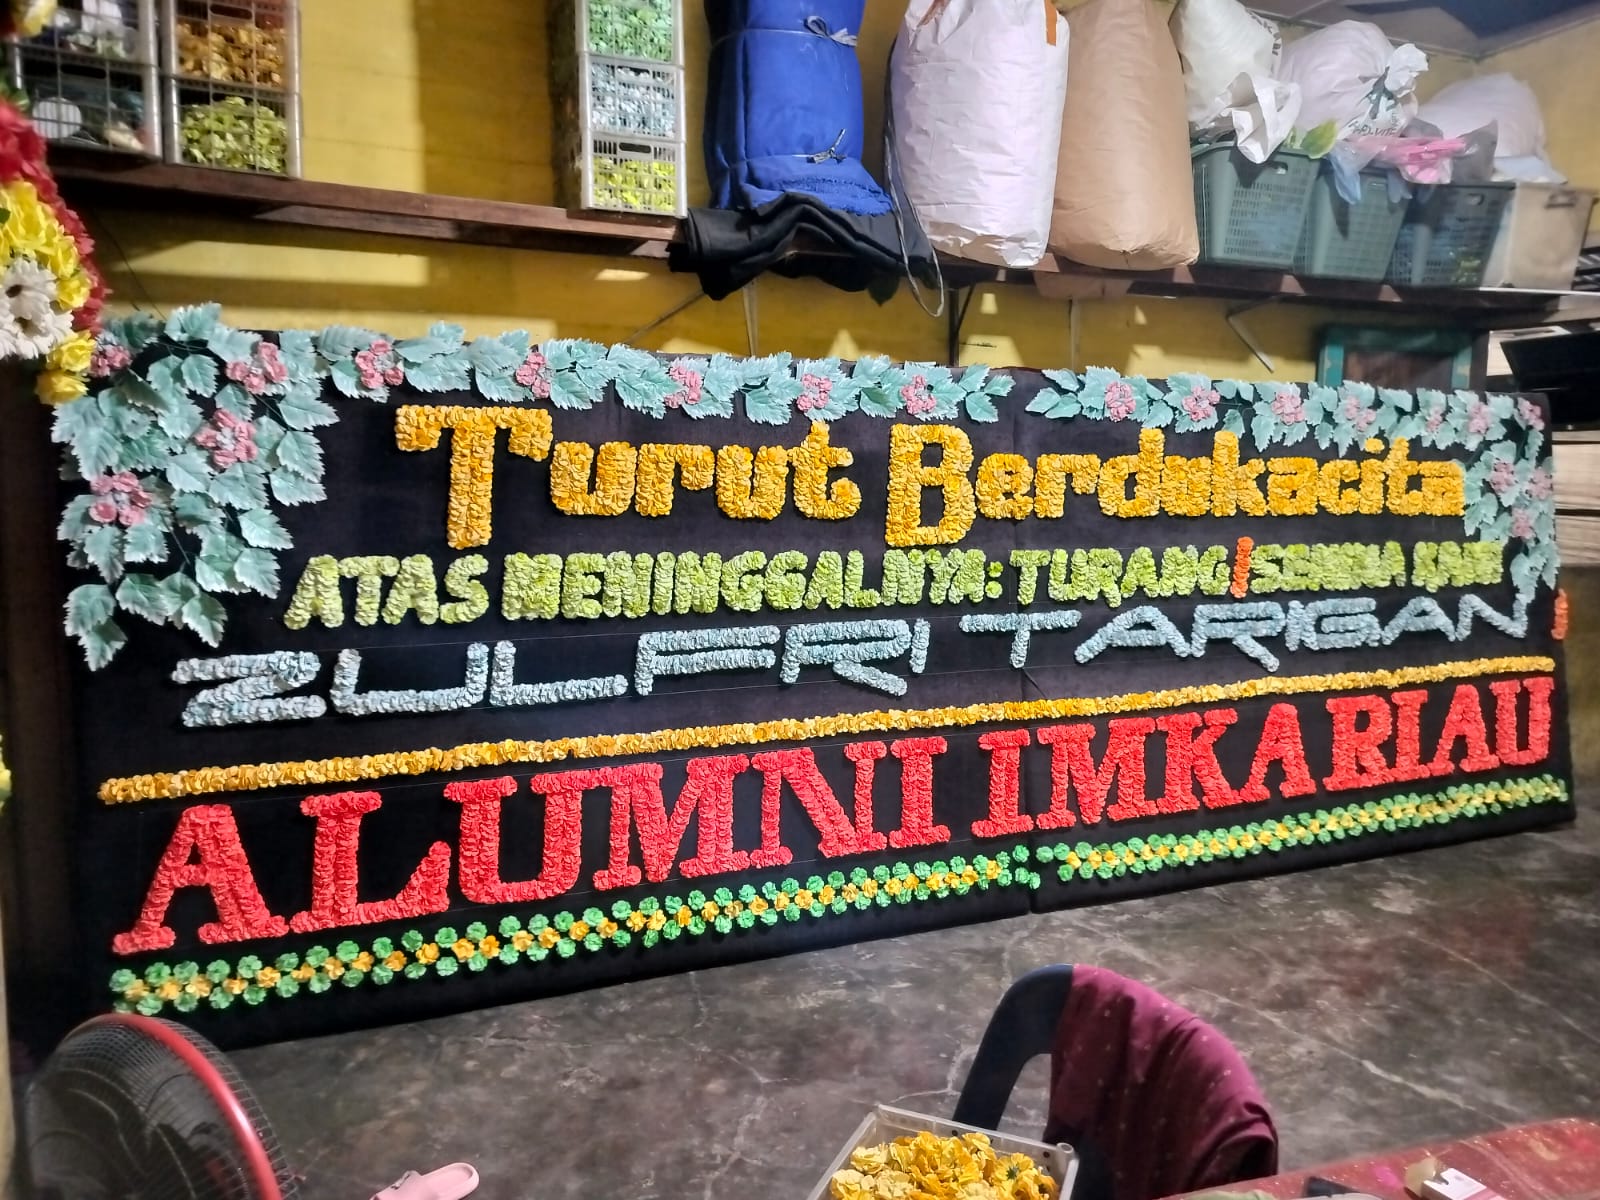 Turut Berdukacita
ATAS MENINGGALNYA: TURANG/SENINA KAMI
ZULFRI TARIGAN
ALUMNI IMKA RIAU